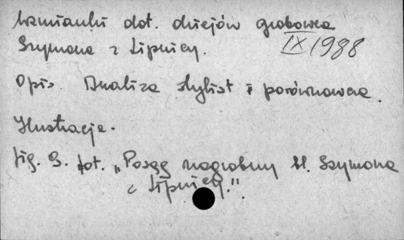 Wzmianki dot. dziejów grobowca
Szymona z Lipnicy.
IX 1988
Opis. Analiza stylist i porównawcza.
Ilustracje.
fig. 3. fot. "Posąg nagrobny bł. Szymona
z Lipnicy".